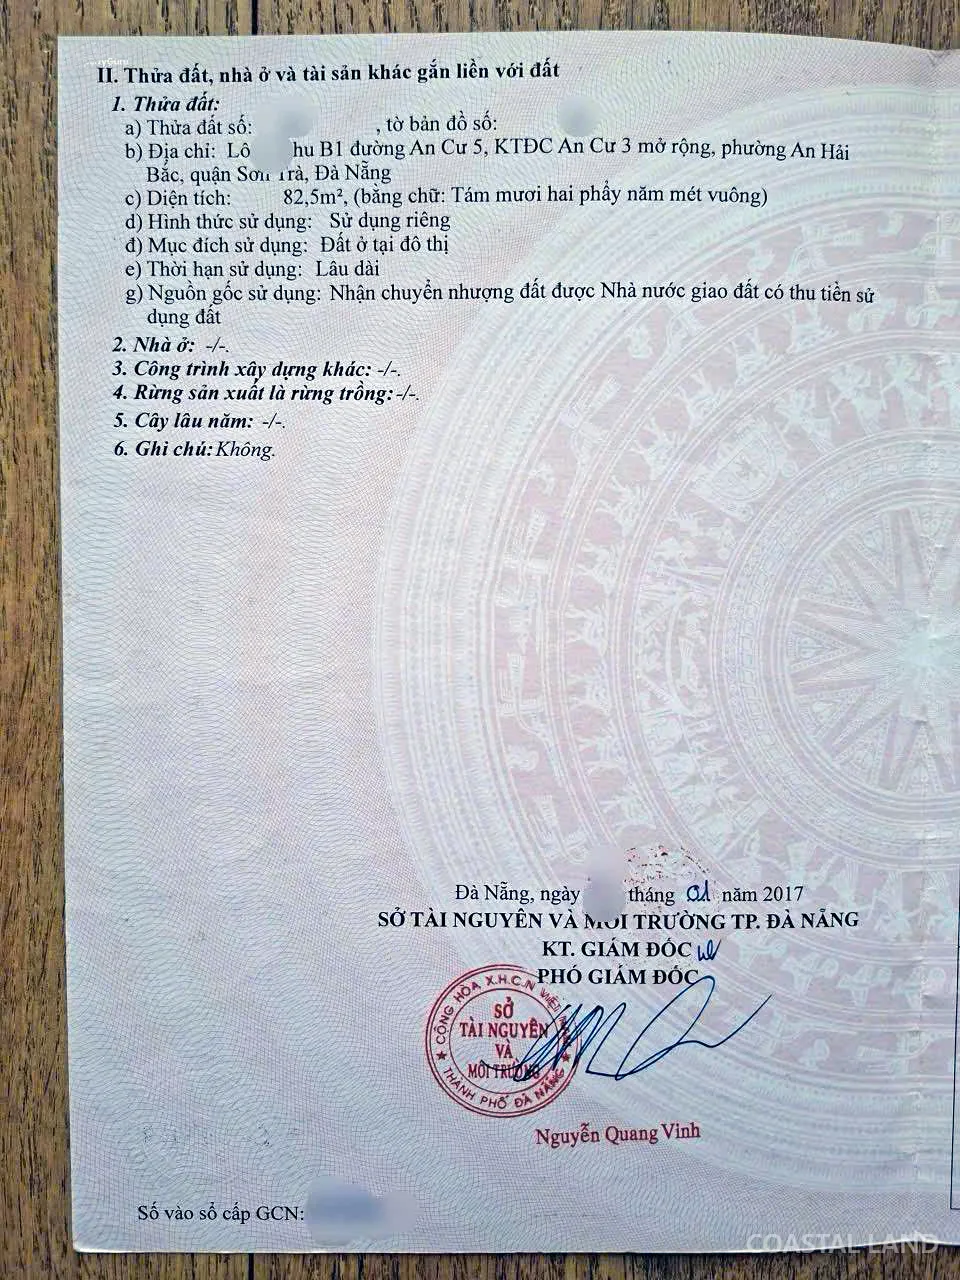 II. Thửa đất, nhà ở và tài sản khác gắn liền với đất
1. Thửa đất:
a) Thửa đất số: , tờ bản đồ số:
b) Địa chỉ: Lô hu B1 đường An Cư 5, KTĐC An Cư 3 mở rộng, phường An Hải
Bắc, quận Sơn Trà, Đà Nẵng
c) Diện tích: 82,5m², (bằng chữ: Tám mươi hai phẩy năm mét vuông)
d) Hình thức sử dụng: Sử dụng riêng
đ) Mục đích sử dụng: Đất ở tại đô thị
e) Thời hạn sử dụng: Lâu dài
g) Nguồn gốc sử dụng: Nhận chuyển nhượng đất được Nhà nước giao đất có thu tiền sử
dụng đất
2. Nhà ở: -/-.
3. Công trình xây dựng khác: -/-.
4. Rừng sản xuất là rừng trồng: -/-.
5. Cây lâu năm: -/-.
6. Ghi chú: Không.
Đà Nẵng, ngày tháng 01 năm 2017
SỞ TÀI NGUYÊN VÀ MÔI TRƯỜNG TP. ĐÀ NẴNG
KT. GIÁM ĐỐC
PHÓ GIÁM ĐỐC
CỘNG HÒA X.H.C.N VIỆT NAM
SỞ
TÀI NGUYÊN
VÀ
MÔI TRƯỜNG
THÀNH PHỐ ĐÀ NẴNG
Nguyễn Quang Vinh
Số vào sổ cấp GCN:
COASTAL LAND